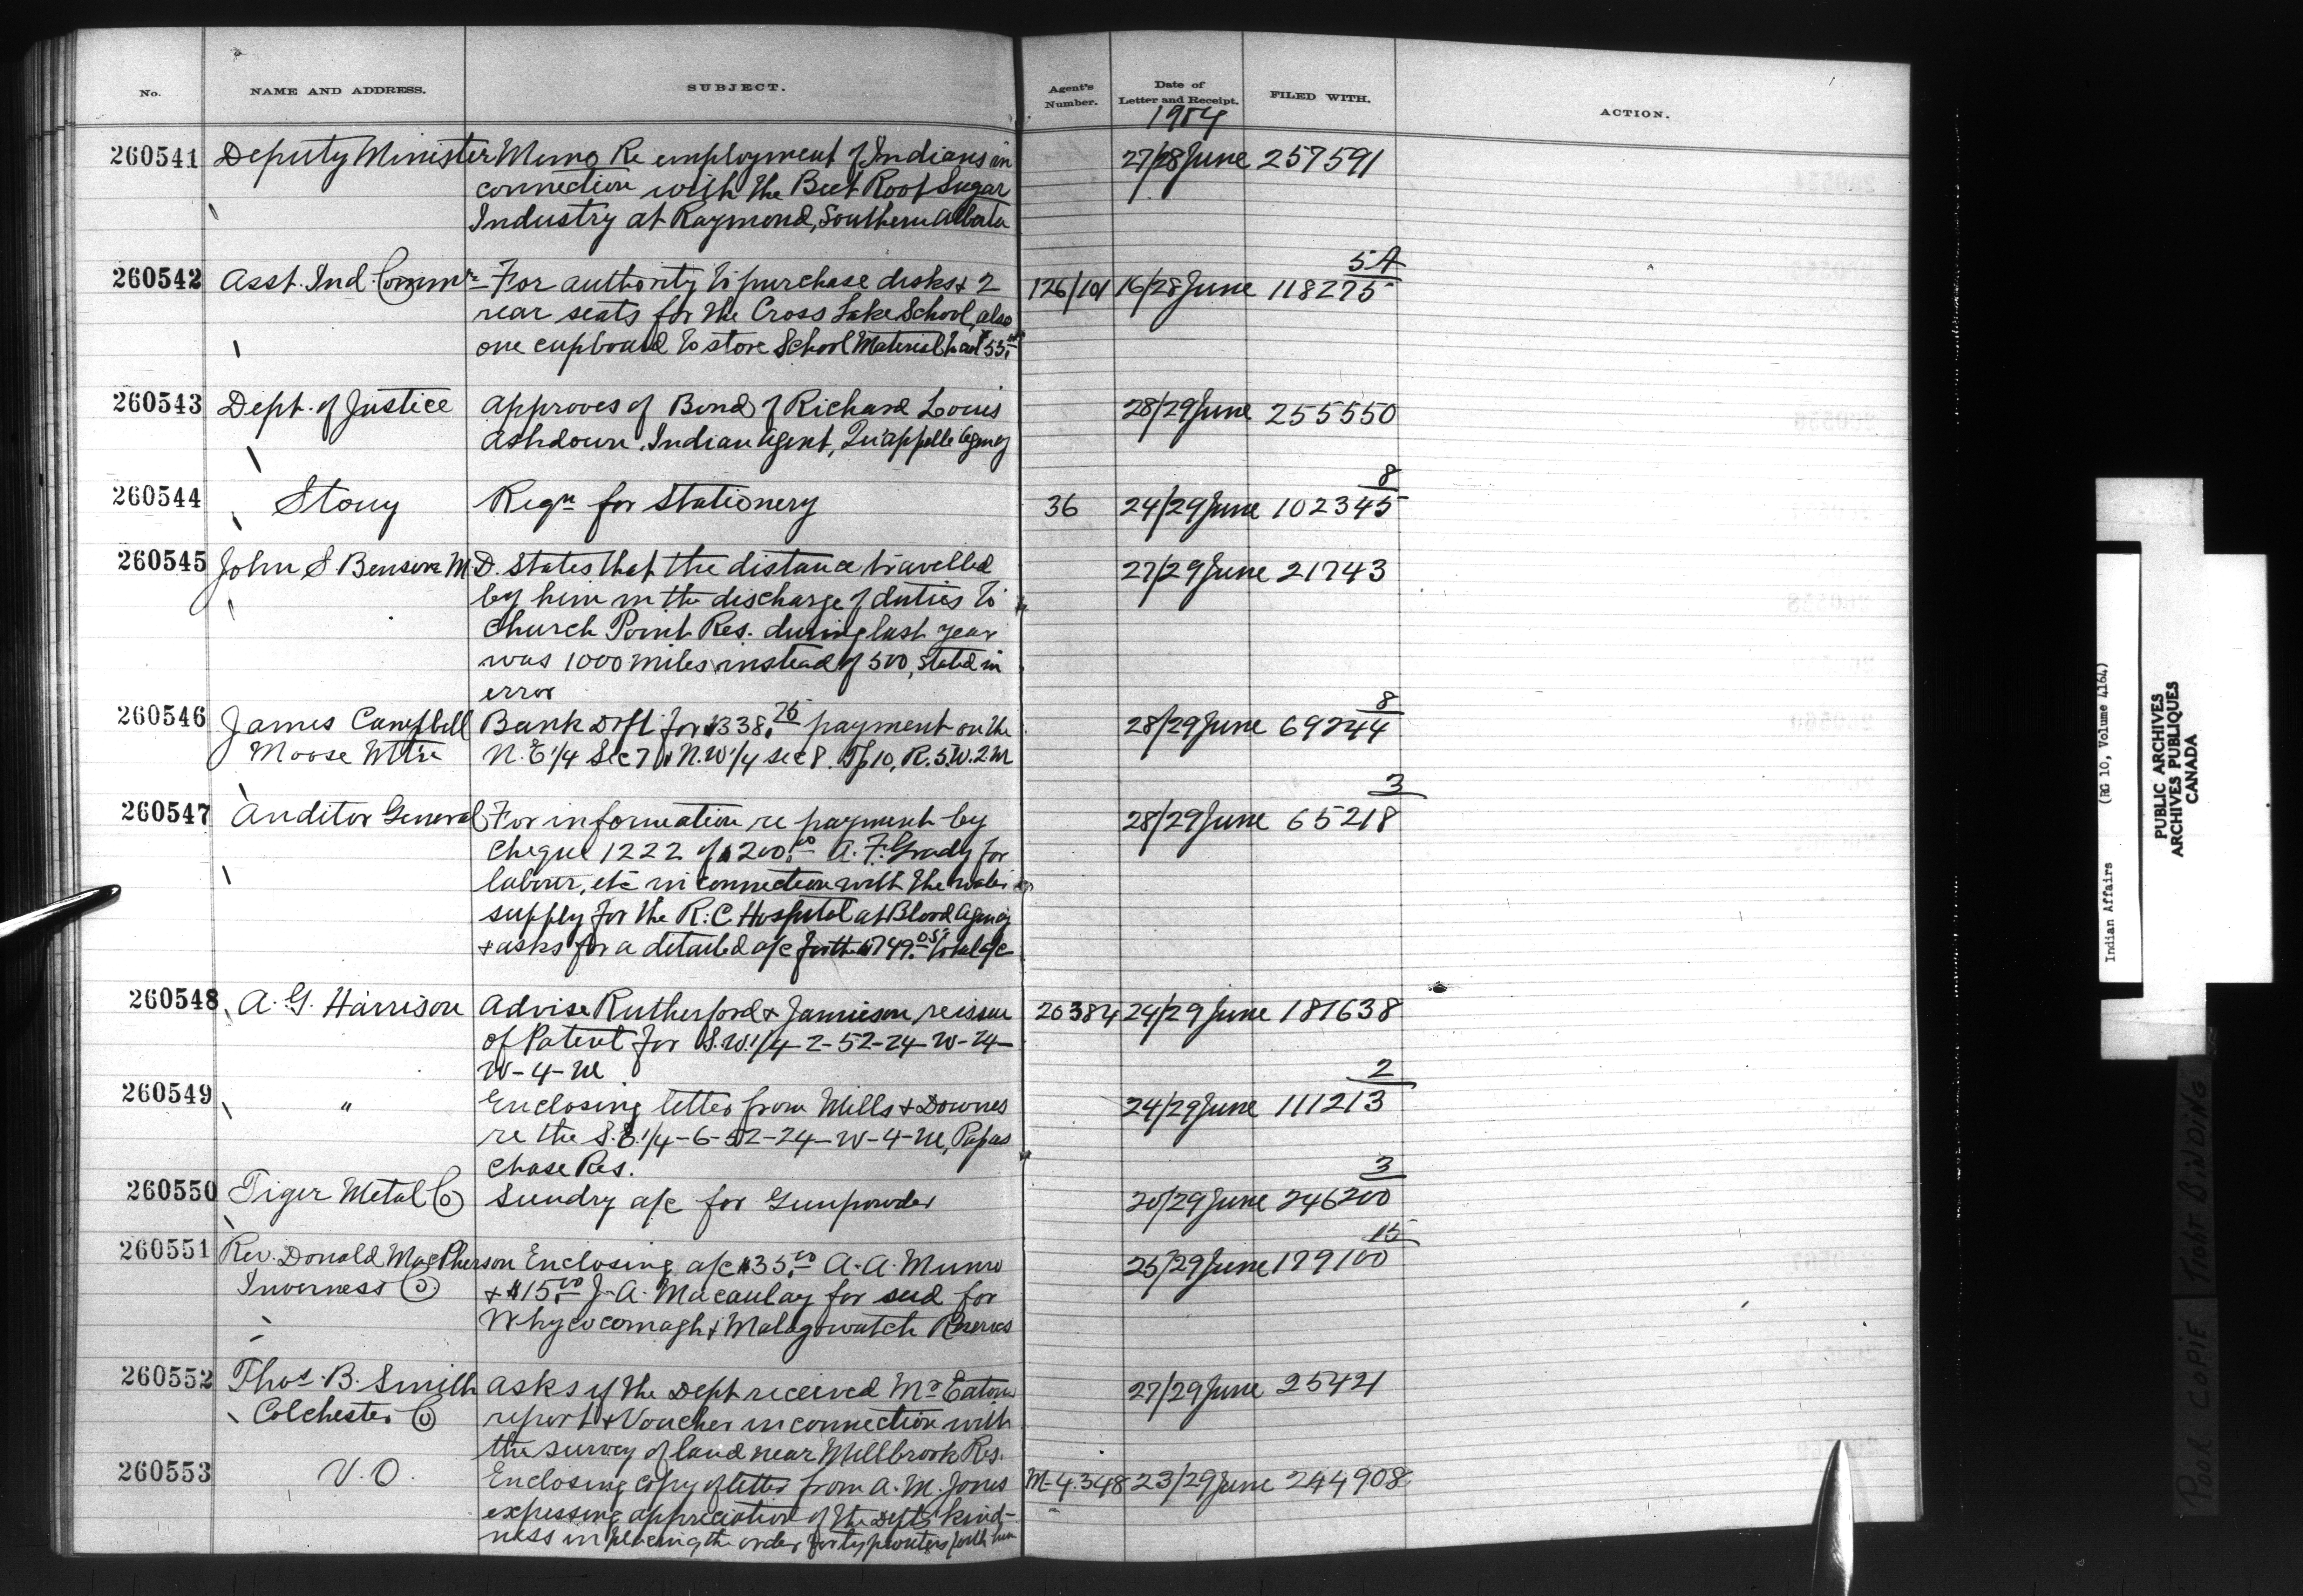 No. NAME AND ADDRESS. SUBJECT. Agent's Number. Date of Letter and Receipt. FILED WITH. ACTION.
1904
260541 Deputy Minister Memo Re employment of Indians in 27/28 June 257591
connection with the Beet Root Sugar
Industry at Raymond, Southern Alberta
5A
260542 Asst. Ind. Commr For authority to purchase desks & 2 126/101 16/28 June 118275
rear seats for the Cross Lake School, also
one cupboard to store School Material to cost 55.00
260543 Dept. of Justice Approves of Bond of Richard Louis 28/29 June 255550
Ashdown, Indian Agent, Qu'appelle Agency
8
260544 Stony Reqn for Stationery 36 24/29 June 102345
260545 John S Benson M.D. States that the distance travelled 27/29 June 21743
by him in the discharge of duties to
Church Point Res. during last year
was 1000 miles instead of 500, stated in
error
8
260546 James Campbell Bank Dft. for $338.75 payment on the 28/29 June 69244
Moose Mtn N.E 1/4 Sec 7 & N.W 1/4 sec 8. Tp 10, R. 5. W. 2. M
3
260547 Auditor General For information re payment by 28/29 June 65218
cheque 1222 of $200.00 A. F. Grady for
labour, etc in connection with the water
supply for the R.C. Hospital at Blood Agency
& asks for a detailed a/c for the $749.05 total a/c
260548 A. G. Harrison Advise Rutherford & Jamieson re issue 20384 24/29 June 181638
of Patent for S.W. 1/4-2-52-24-W-24-
W-4-M
2
260549 " Enclosing letter from Mills & Downes 24/29 June 111213
re the S.E. 1/4-6-52-24-W-4-M, Papas
chase Res.
3
260550 Tiger Metal Co Sundry a/c for Gunpowder 20/29 June 246200
15
260551 Rev. Donald MacPherson Enclosing a/c $35.00 A. A. Munro 25/29 June 179100
Inverness Co & $15.00 J. A. Macaulay for seed for
Whycocomagh & Malagawatch Reserves
260552 Thos. B. Smith Asks if the Dept received Mr Eatons 27/29 June 25421
Colchester Co report & Voucher in connection with
the survey of land near Millbrook Res.
260553 V.O. Enclosing copy of letter from A. M. Jones M-4.348 23/29 June 244908
expressing appreciation of the Depts kind-
ness in placing the order for typewriters with him
Indian Affairs (RG 10, Volume 4164)
PUBLIC ARCHIVES
ARCHIVES PUBLIQUES
CANADA
POOR COPIE TIGHT BINDING